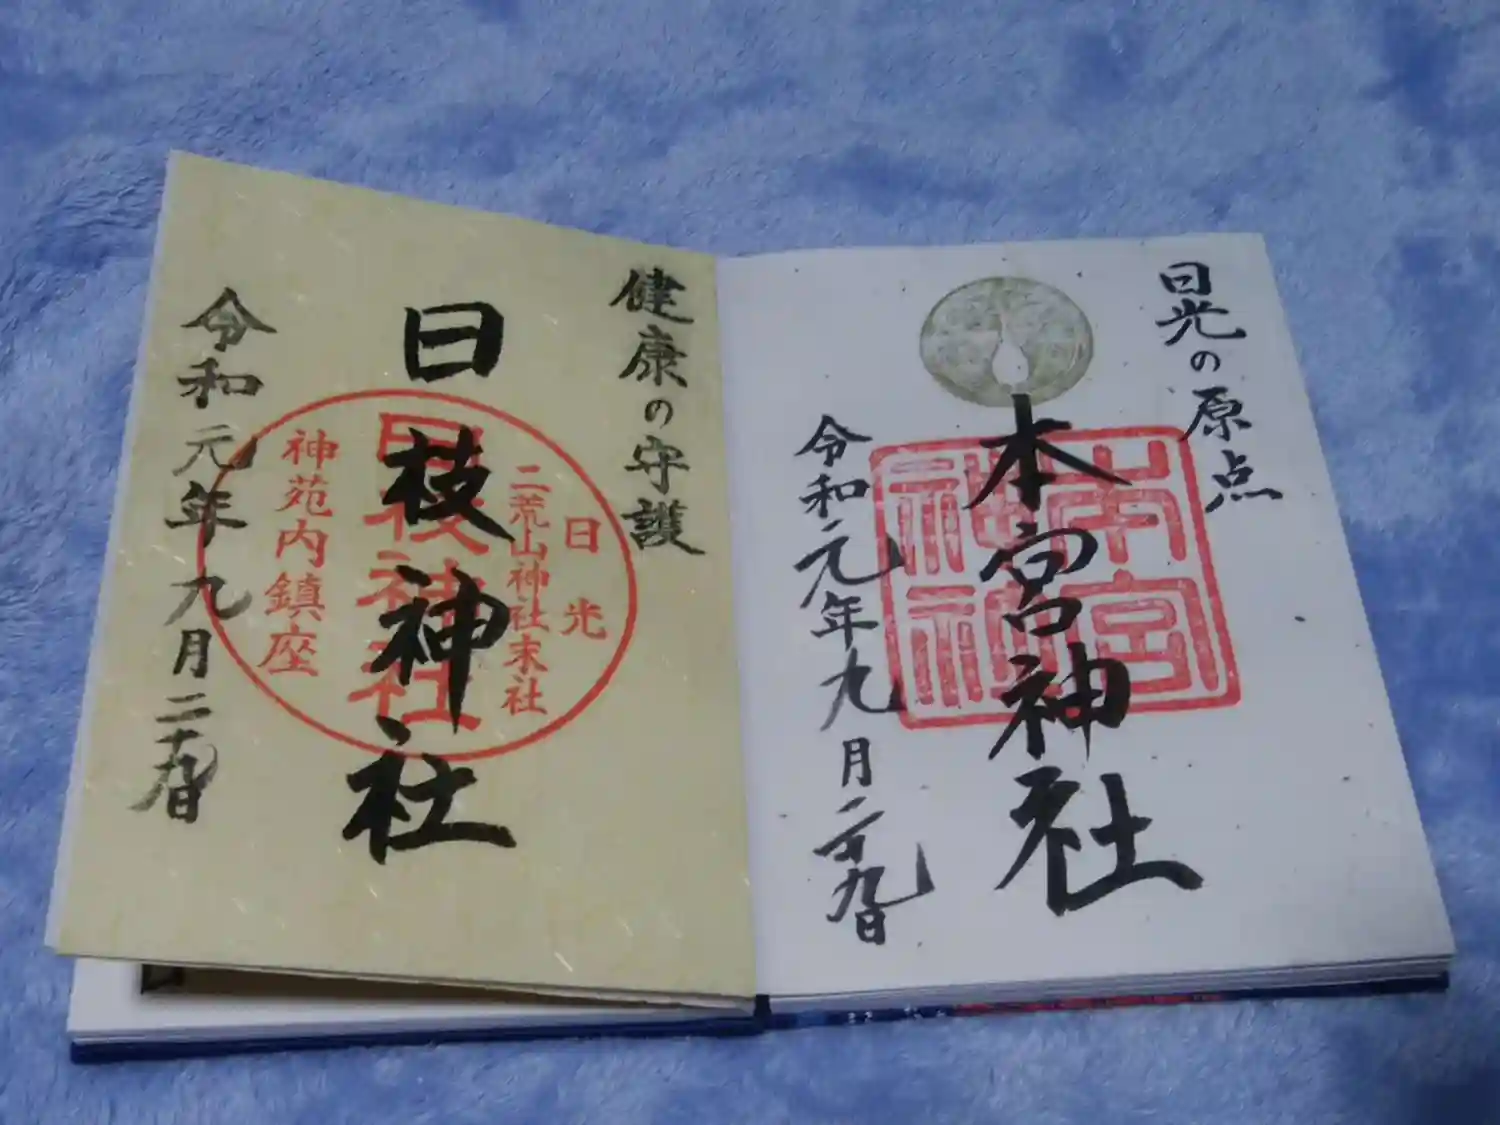 日光の原点
本宮神社
本宮
神社
令和元年九月二十九日
健康の守護
日枝神社
日光
二荒山神社末社
日枝神社
神苑内鎮座
令和元年九月二十九日